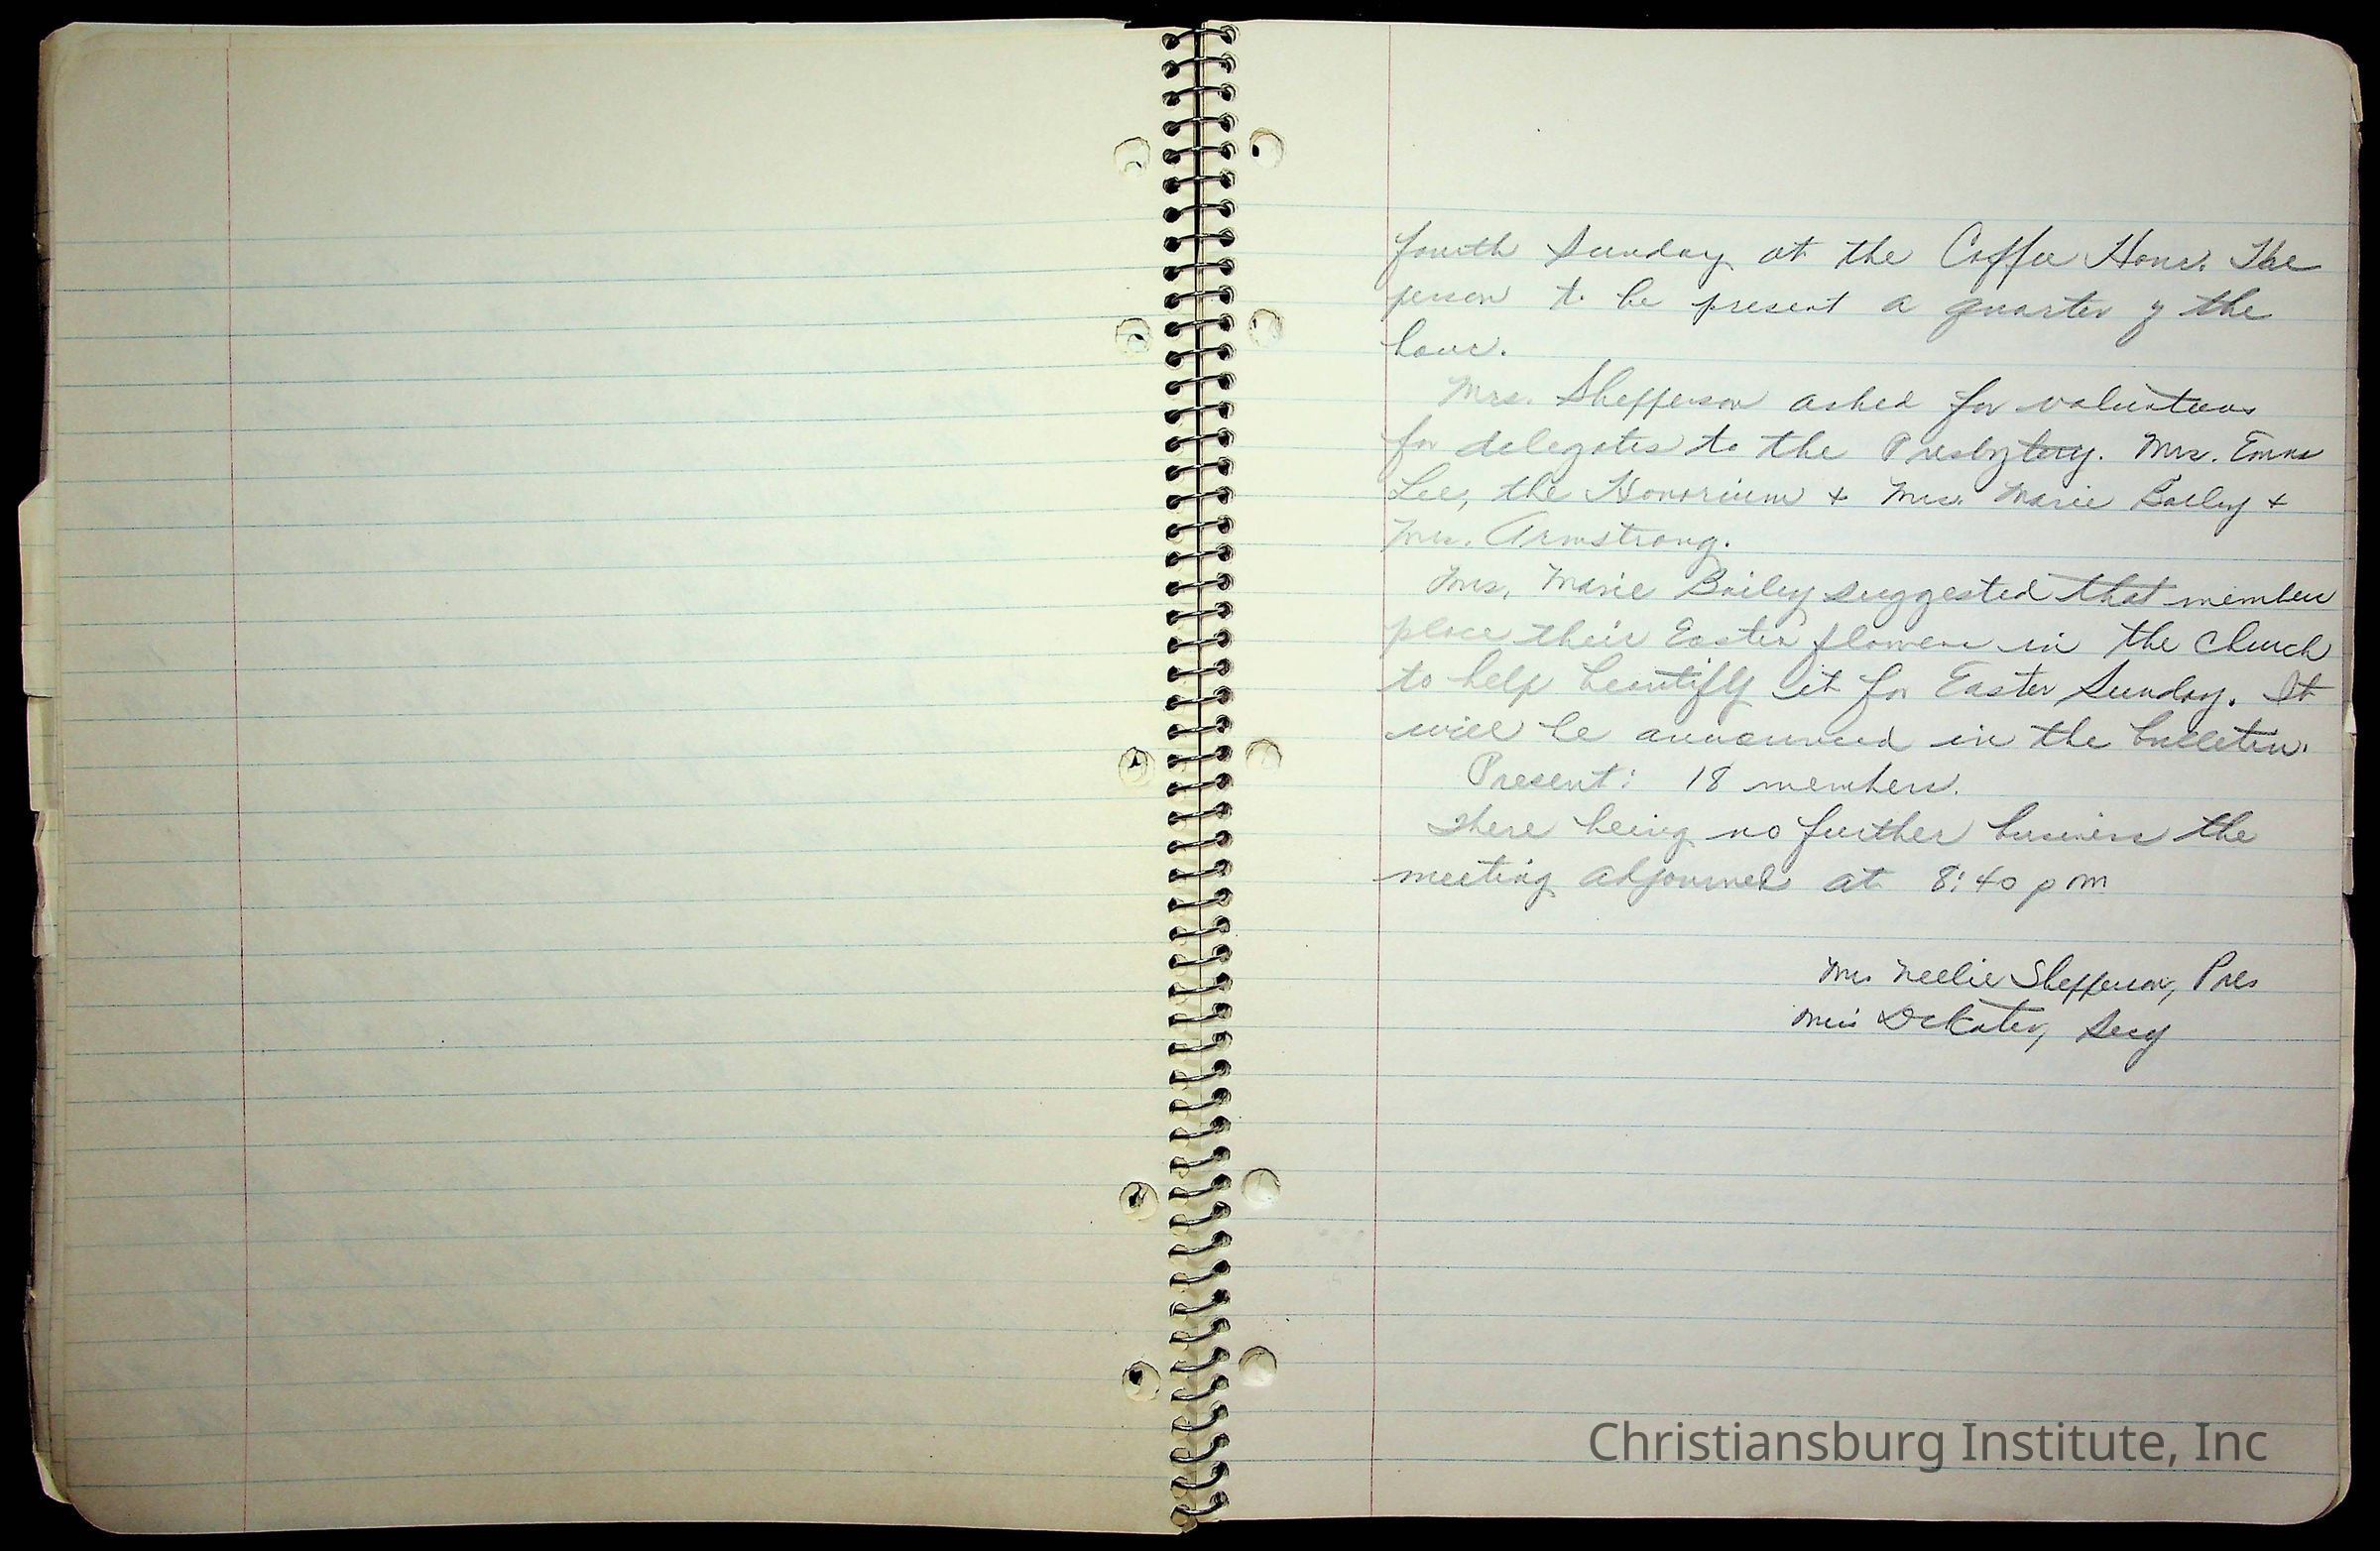 fourth Sunday at the Coffee Hour. The
person to be present a quarter y the
hour.
Mrs. Shefferson asked for volunteers
for delegates to the Presbytery. Mrs. Emma
Lee, the Honorium & Mrs. Marie Bailey &
Mrs. Armstrong.
Mrs. Marie Bailey suggested that member
place their Easter flowers in the church
to help beautifly it for Easter Sunday. It
will be announced in the bulletin.
Present: 18 members.
There being no further business the
meeting adjourned at 8:40 pm
Mrs Neelie Shefferson, Pres
Miss Dekater, Secy
Christiansburg Institute, Inc